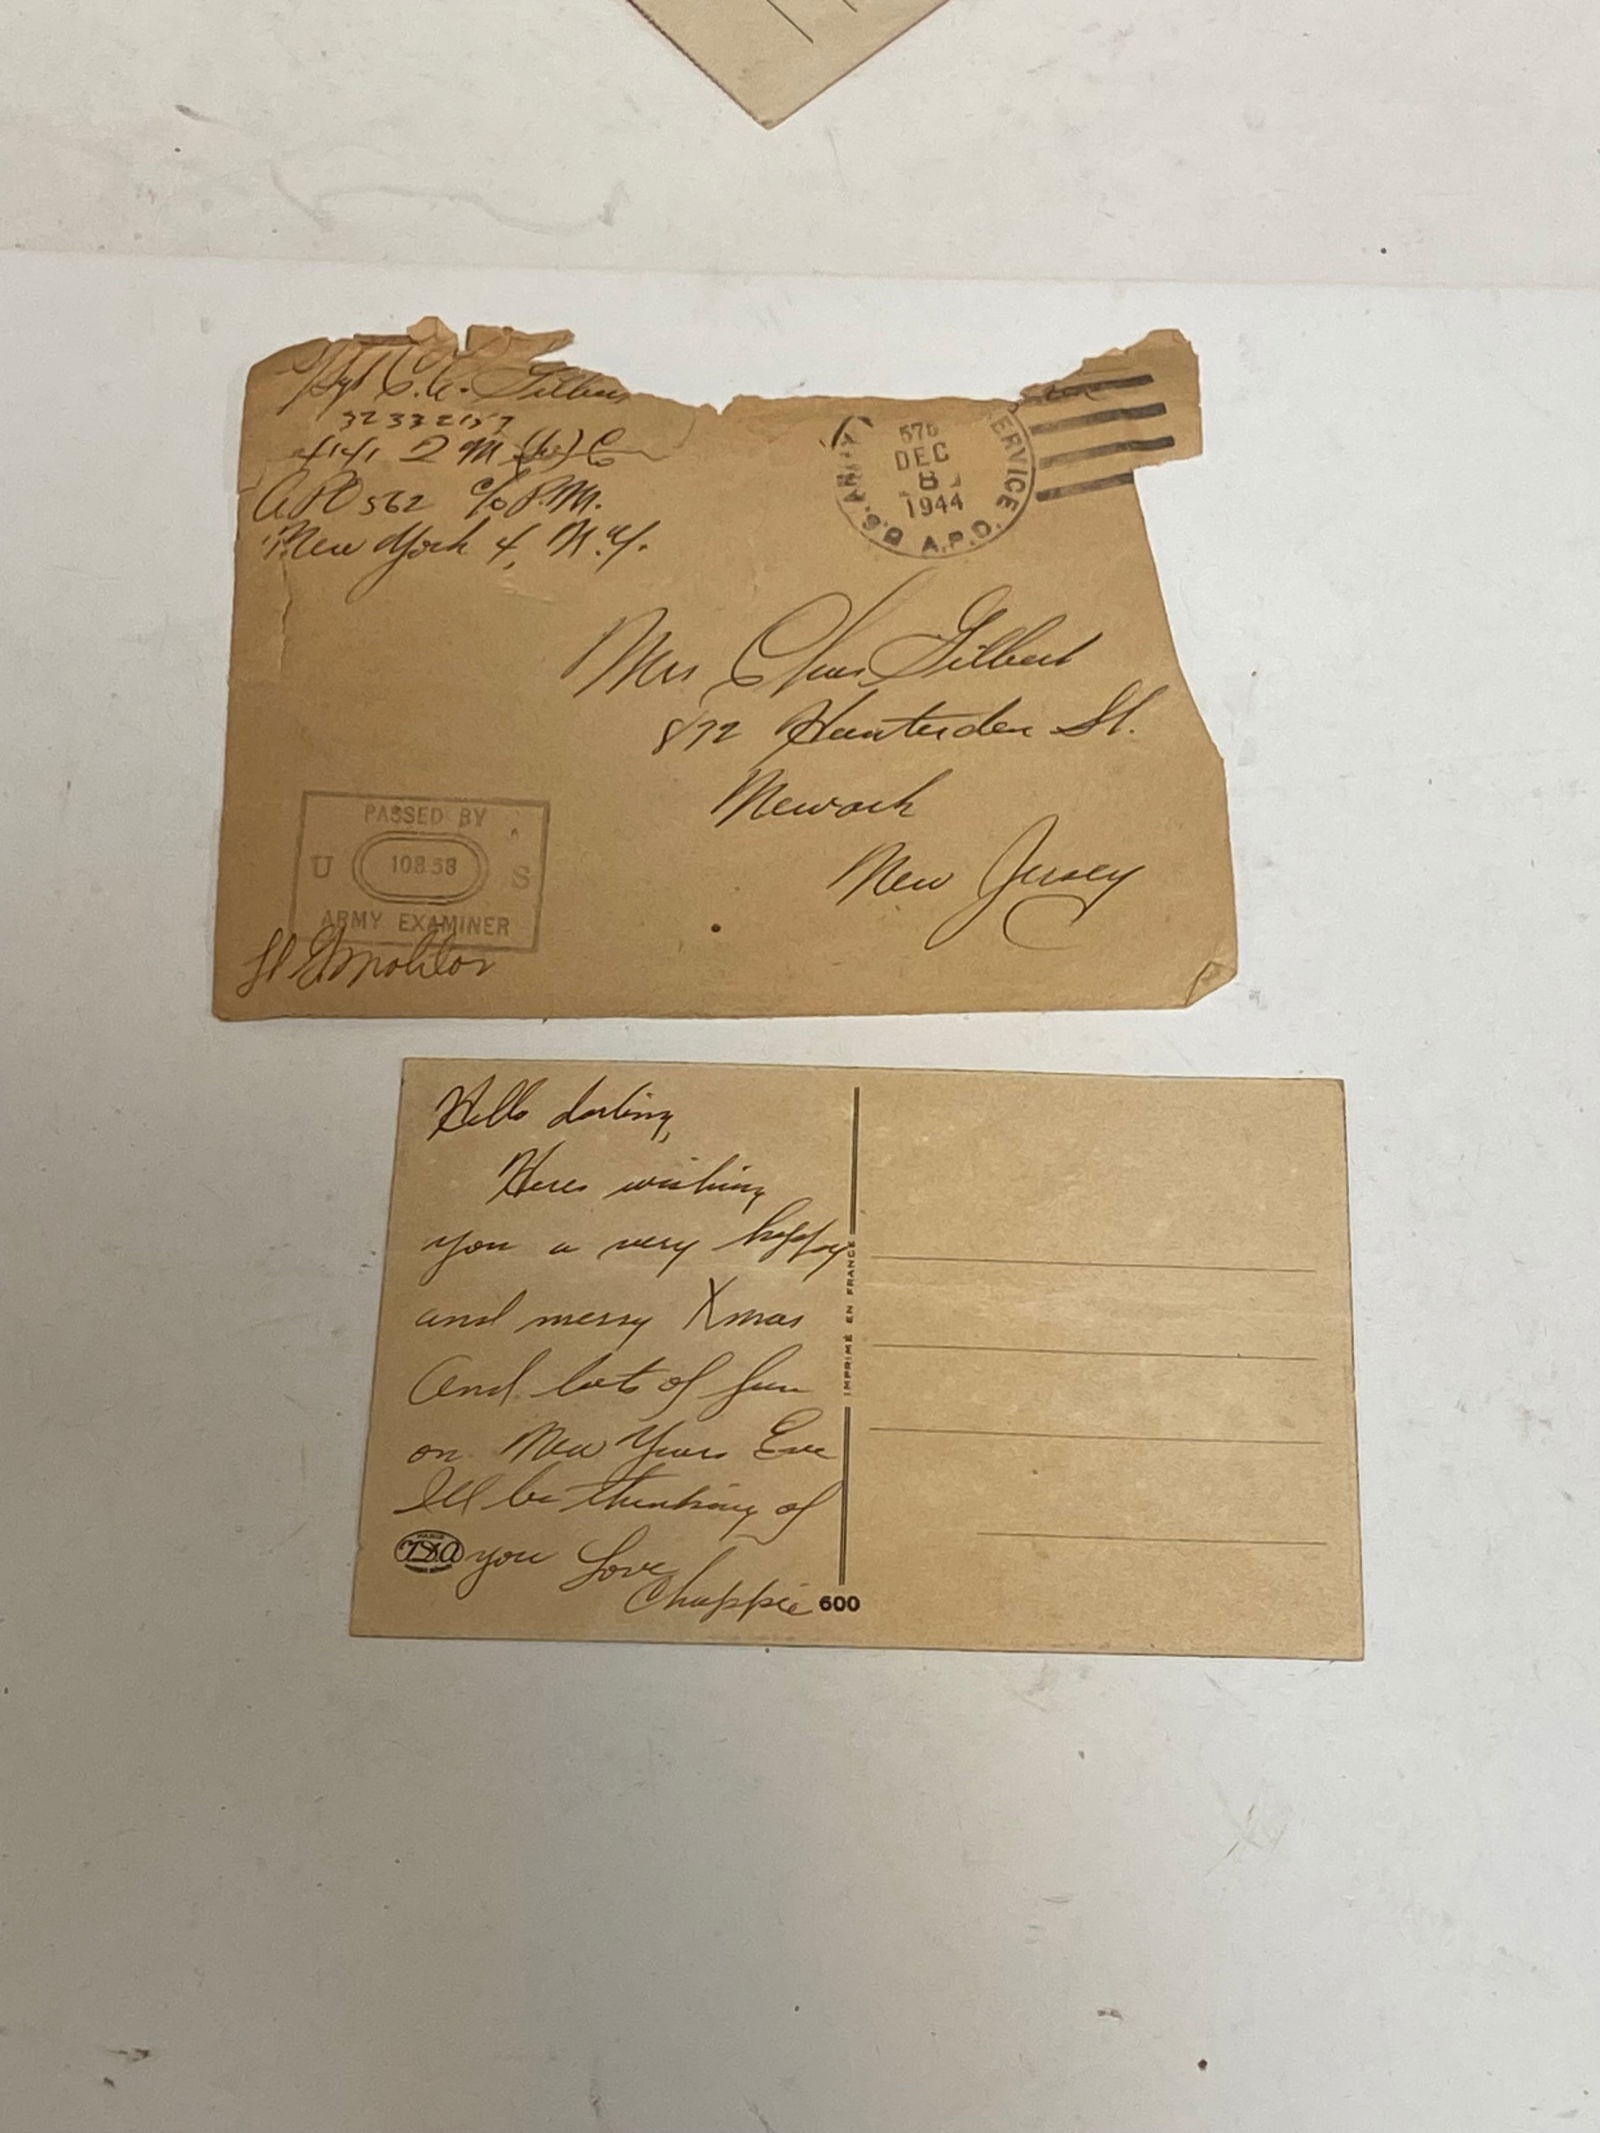 T/Sgt C.A. Gilbert
32332157
4141 Q M (Sv) Co
APO 562 c/o P.M.
New York 4, N.Y.
576
DEC
8
1944
U.S. ARMY
A.P.O.
SERVICE
Mrs Chas Gilbert
872 Hunterdon St.
Newark
New Jersey
PASSED BY
U 10838 S
ARMY EXAMINER
Hello darling,
Heres wishing
you a very happy
and merry Xmas
And lots of fun
on New Years Eve
Ill be thinking of
you Love
Chappie
IMPRIMÉ EN FRANCE
PARIS
600